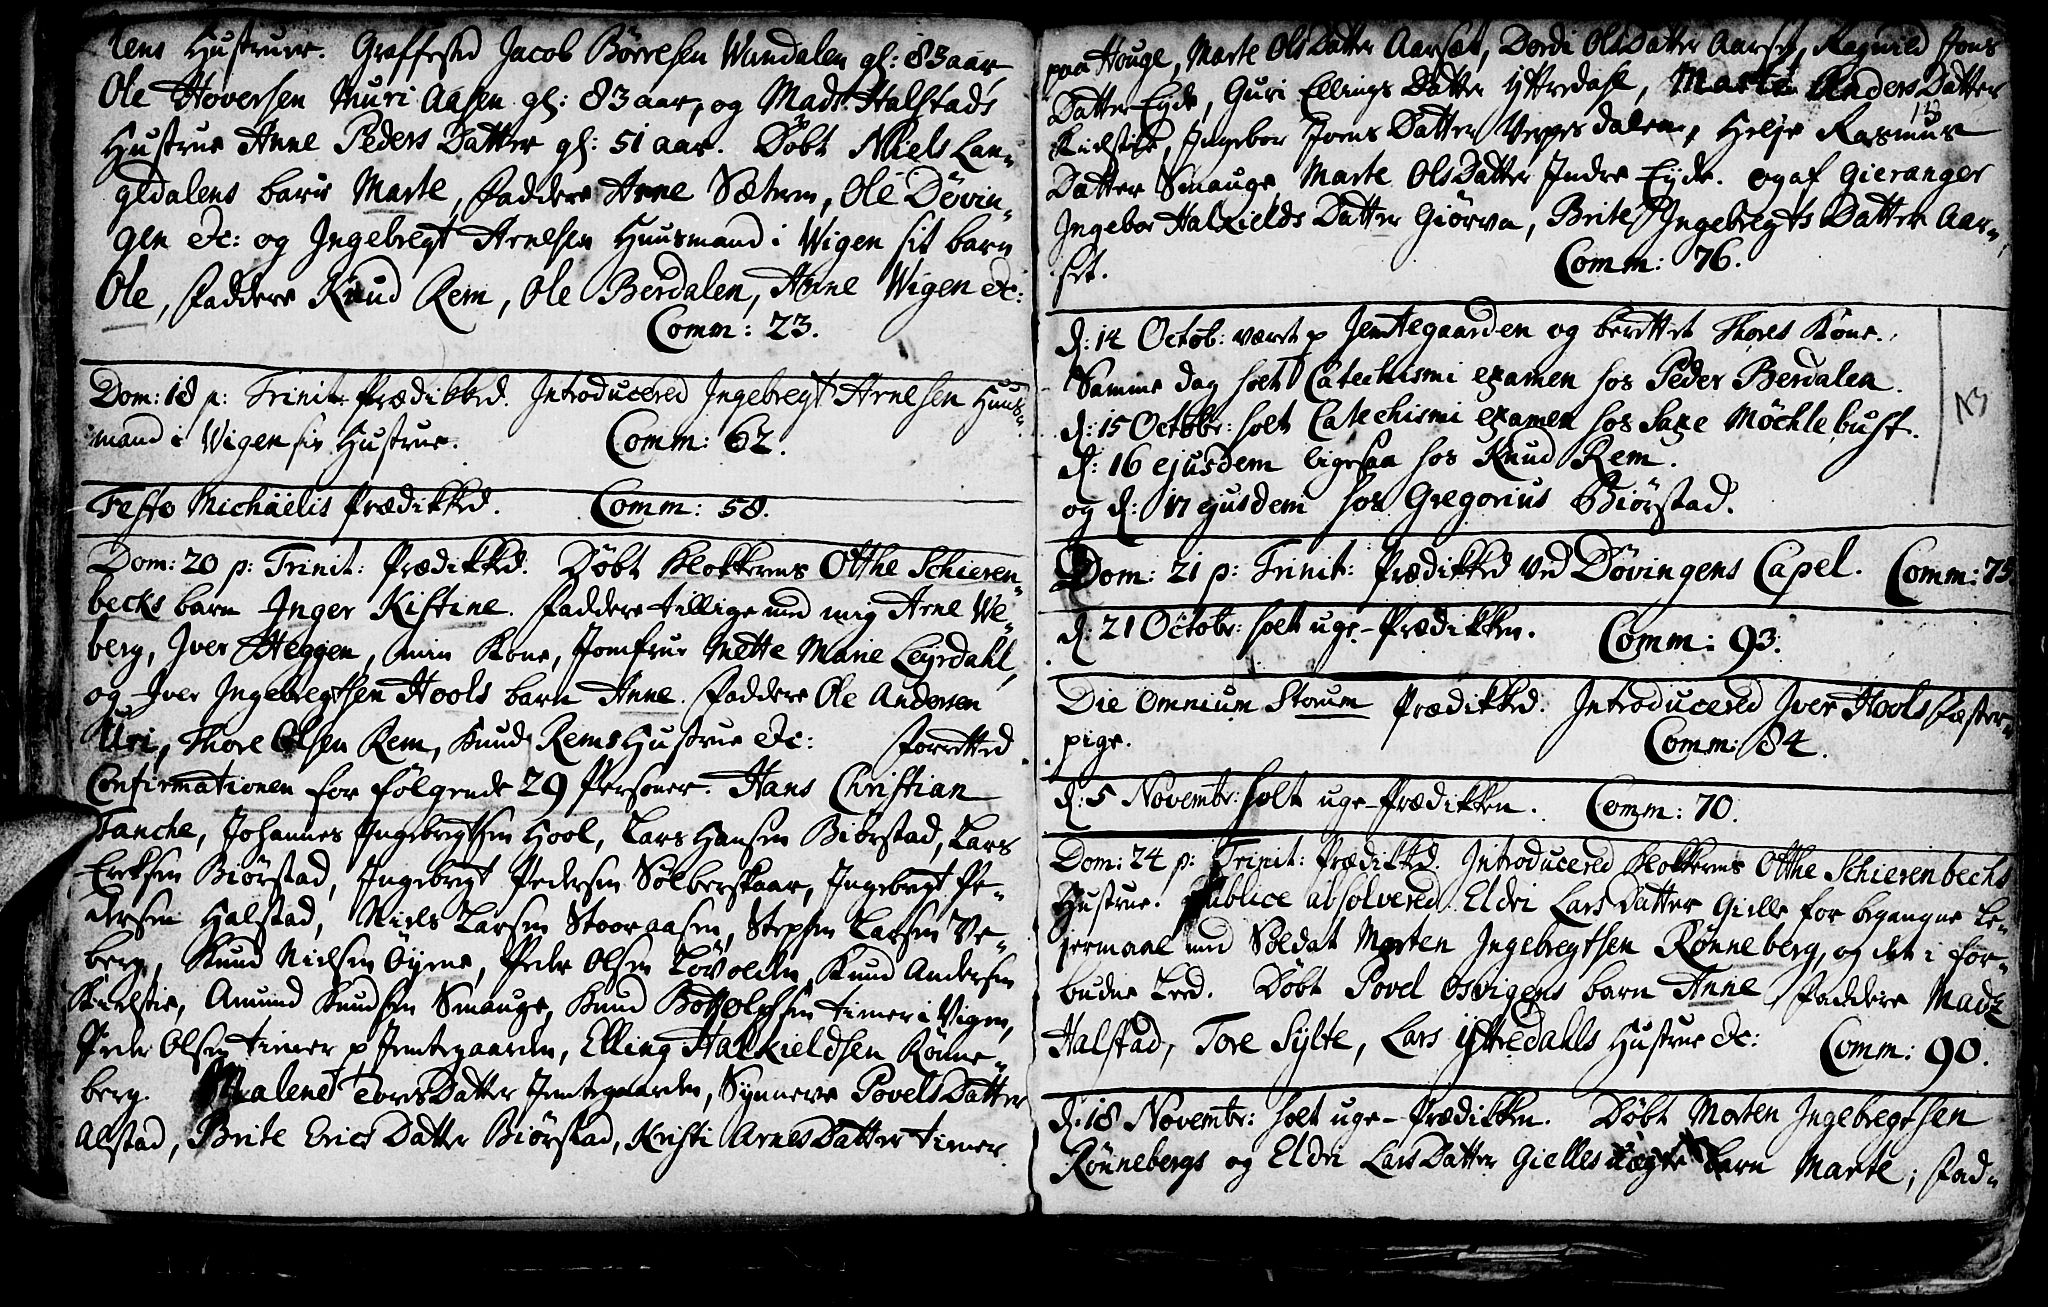 lens Hustrue. Graffested Jacob Börresen Windalen gl: 83 aar,
Ole Hoversen Muri Aasen gl: 83 aar, og Mads Halstads
Hustrue Anne Peders Datter gl: 51 aar. Döbt Niels Lan-
gedalens barn Marte, Faddere Anne Sætren, Ole Dövin-
gen &c: og Ingebregt Arnesen Huusmand i Wigen sit barn
Ole, Faddere Knud Rem, Ole Berdalen, Anne Wigen &c:
Comm: 23.
Dom: 18 p: Trinit: Prædikked. Introducered Ingebregt Arnesen Huus-
mand i Wigen sin Hustrue. Comm: 62.
Festo Michaëlis Prædikked. Comm: 58.
Dom: 20 p: Trinit: Prædikked. Döbt Klokkerens Otthe Schieren-
becks barn Inger Kistine. Faddere tillige med mig Arne We-
berg, Iver Heggen, min Kone, Jomfrue Mette Marie Leyrdahl,
og Iver Ingebregtsen Hools barn Anne. Faddere Ole Andersen
Uri, Thore Olsen Rem, Knud Rems Hustrue &c: Forretted
Confirmationen for fölgende 29 Personer. Hans Christian
Tanche, Johannes Ingebregtsen Hool, Lars Hansen Biörstad, Lars
Ericksen Biörstad, Ingebregt Pedersen Sölberskaar, Ingebregt Pe-
dersen Halstad, Niels Larsen Stooraasen, Stephen Larsen We-
berg, Knud Nielsen Öyene, Peder Olsen Lövolden, Knud Andersen
Kielstie, Amund Knudsen Smauge, Knud Bottolphsen tiener i Vigen,
Peder Olsen tiener p Jemtegaarden, Elling Halkieldsen Rönne-
berg. Malene Tores Datter Jemtegaarden, Synneve Povels Datter
Alstad, Brite Erics Datter Biörstad, Kristi Arnes Datter tiener
paa Houge, Marte Ols Datter Aarset, Dordi Ols Datter Aarset, Ragnild Jons
Datter Eyde, Guri Ellings Datter Yttredahl, Marte Anders Datter
113
Kielstie, Ingebor Joens Datter Veyesdalen, Helje Rasmus
Datter Smauge, Marte Ols Datter Indre Eyde. og af Gieranger
Ingebor Halkields Datter Giörva, Brite Ingebregts Datter Aar-
set. Comm: 76.
d: 14 Octob: været p Jemtegaarden og berettet Thores Kone.
Samme dag holt Catechismi examen hos Peder Berdalen.
d: 15 Octobr: holt Catechismi examen hos Saxe Möchlebust.
NB
d: 16 ejusdem ligesaa hos Knud Rem.
og d: 17 ejusdem hos Gregorius Biörstad.
Dom: 21 p: Trinit: Prædikked ved Dövingens Capel. Comm: 75.
d: 21 Octobr: holt uge-Prædikken. Comm: 93.
Die Omnium Storum Prædikked. Introducered Iver Hools Fæster-
pige. Comm: 84.
d: 5 Novembr: holt uge-Prædikken. Comm: 70.
Dom: 24 p: Trinit: Prædikked. Introducered Klokkerens Otthe Schierenbechs
Hustrue. Publice absolvered Eldri Lars Datter Gielle for begangne Le-
jermaal med Soldat Morten Ingebregtsen Rönneberg, og det i for-
budne Leed. Döbt Povel Osvigens barn Anne, Faddere Madz
Halstad, Tore Sylte, Lars Yttredahls Hustrue &c: Comm: 90.
d: 18 Novembr: holt uge-Prædikken. Döbt Morten Ingebregtsen
Rönnebergs og Eldri Lars Datter Gielles uægte barn Marte; Fad-